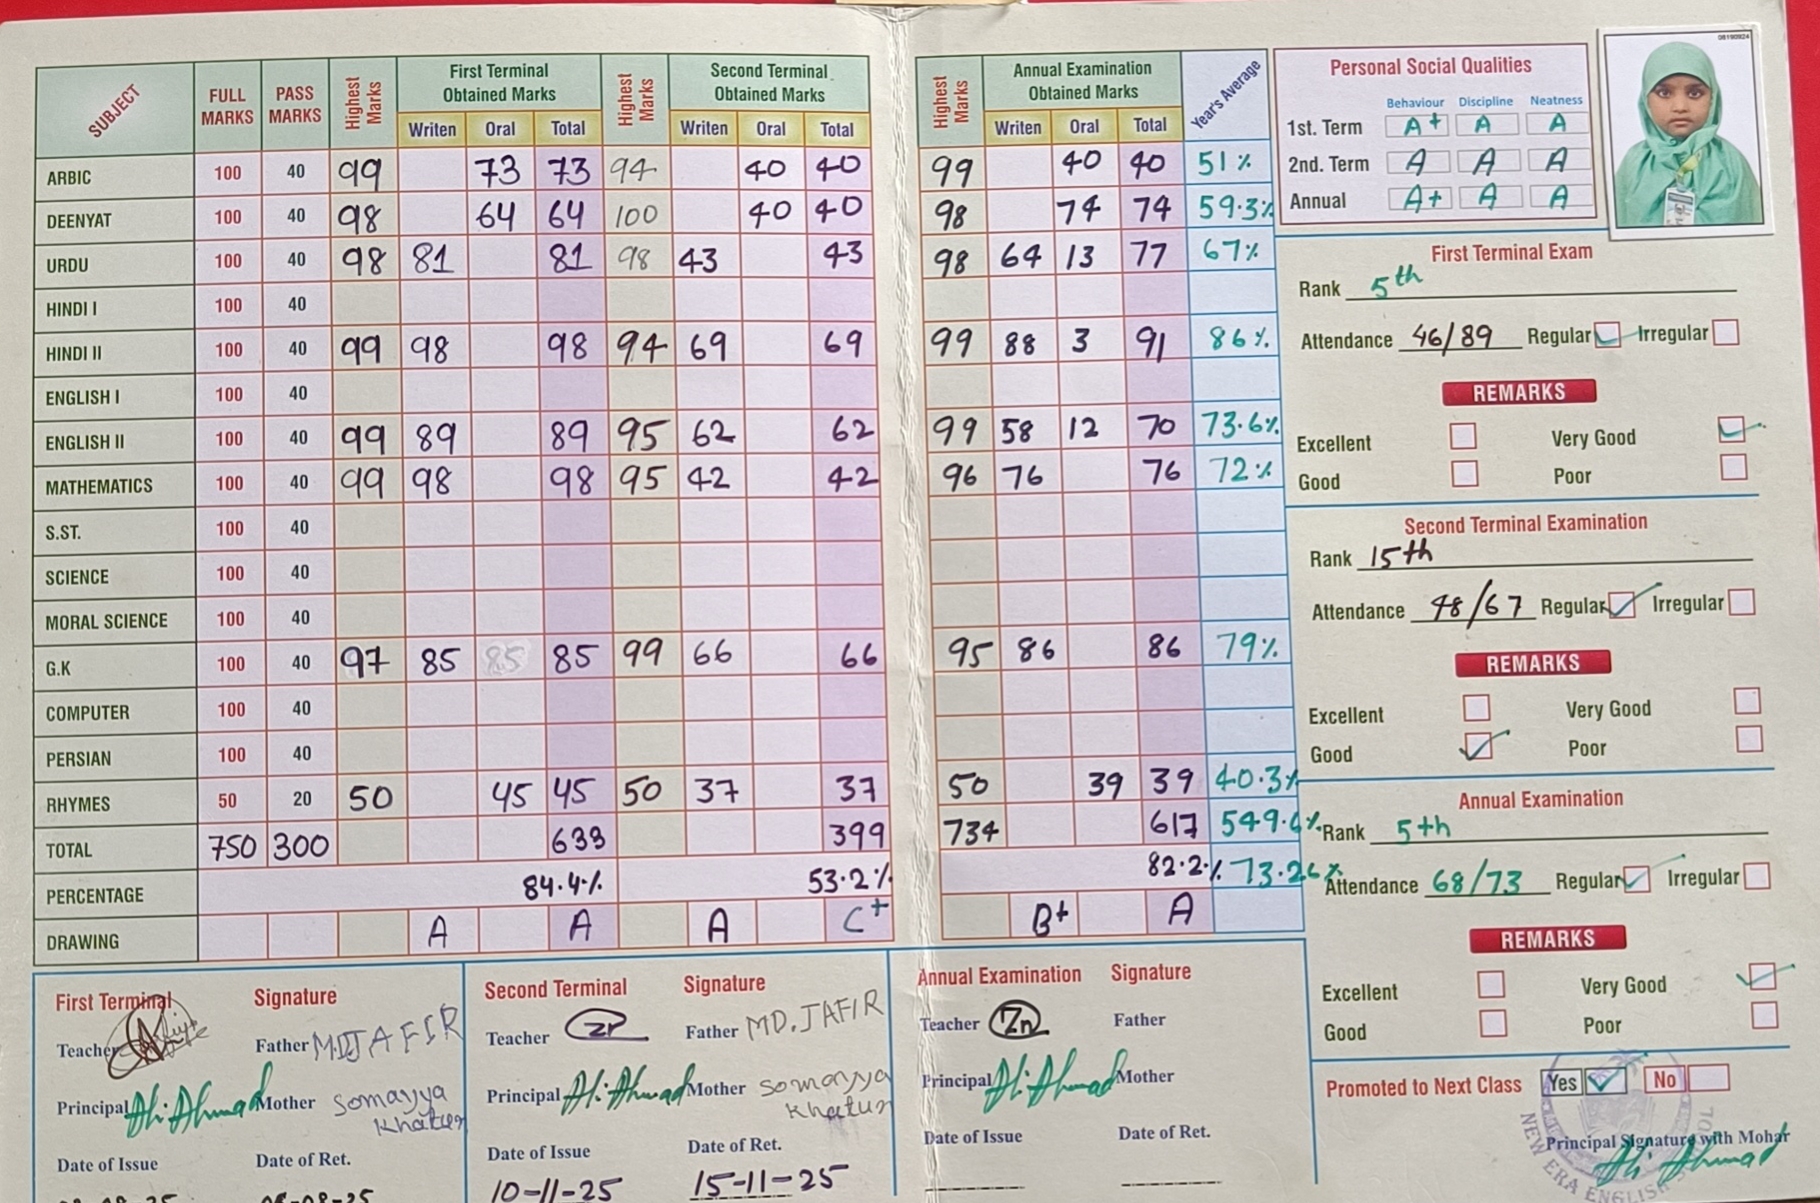 SUBJECT FULL MARKS PASS MARKS Highest Marks First Terminal Obtained Marks Highest Marks Second Terminal Obtained Marks Highest Marks Annual Examination Obtained Marks Year's Average
Writen Oral Total Writen Oral Total Writen Oral Total
ARBIC 100 40 99 73 73 94 40 40 99 40 40 51%
DEENYAT 100 40 98 64 64 100 40 40 98 74 74 59.3%
URDU 100 40 98 81 81 98 43 43 98 64 13 77 67%
HINDI I 100 40
HINDI II 100 40 99 98 98 94 69 69 99 88 3 91 86%
ENGLISH I 100 40
ENGLISH II 100 40 99 89 89 95 62 62 99 58 12 70 73.6%
MATHEMATICS 100 40 99 98 98 95 42 42 96 76 76 72%
S.ST. 100 40
SCIENCE 100 40
MORAL SCIENCE 100 40
G.K 100 40 97 85 85 85 99 66 66 95 86 86 79%
COMPUTER 100 40
PERSIAN 100 40
RHYMES 50 20 50 45 45 50 37 37 50 39 39 40.3%
TOTAL 750 300 633 399 734 617 549.6%
PERCENTAGE 84.4% 53.2% 82.2% 73.26%
DRAWING A A A C+ B+ A
Personal Social Qualities
Behaviour Discipline Neatness
1st. Term A+ A A
2nd. Term A A A
Annual A+ A A
08190824
First Terminal Exam
Rank 5th
Attendance 46/89 Regular Irregular
REMARKS
Excellent Very Good
Good Poor
Second Terminal Examination
Rank 15th
Attendance 48/67 Regular Irregular
REMARKS
Excellent Very Good
Good Poor
Annual Examination
Rank 5th
Attendance 68/73 Regular Irregular
REMARKS
Excellent Very Good
Good Poor
Promoted to Next Class Yes No
Principal Signature with Mohar
Ali Ahmad
NEW ERA ENGLISH
First Terminal Signature
Teacher Father MD JAFIR
Principal Ali Ahmad Mother Somayya Khatun
Date of Issue Date of Ret.
Second Terminal Signature
Teacher Father MD. JAFIR
Principal Ali Ahmad Mother Somayya Khatun
Date of Issue Date of Ret.
10-11-25 15-11-25
Annual Examination Signature
Teacher Zn Father
Principal Ali Ahmad Mother
Date of Issue Date of Ret.